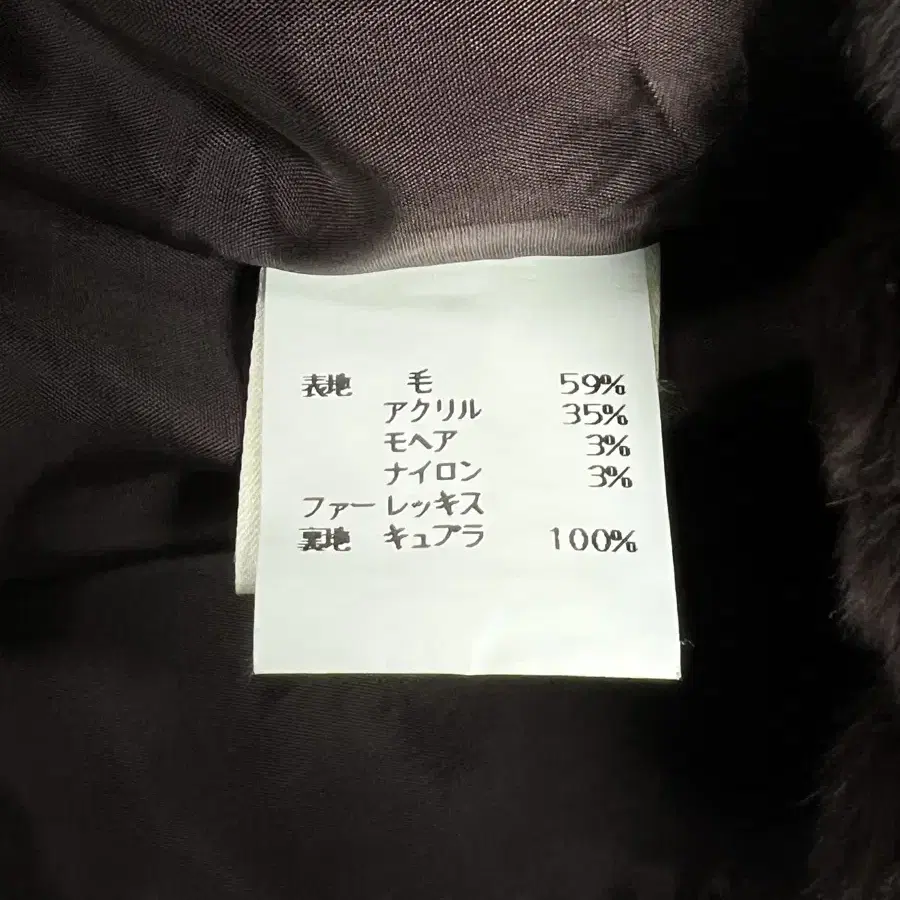 表地 毛 59%
アクリル 35%
モヘア 3%
ナイロン 3%
ファー レッキス
裏地 キュプラ 100%